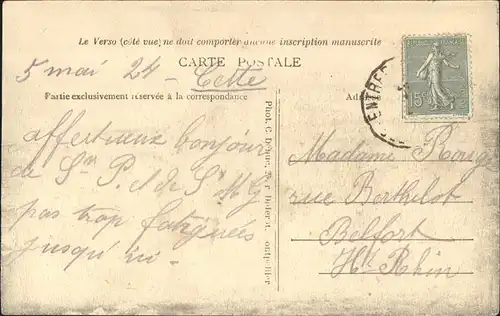 Le Verso (côté vue) ne doit comporter aucune inscription manuscrite
CARTE POSTALE
5 mai 24 - Cette
Partie exclusivement réservée à la correspondance
affectueux bonjour
de Sr P. et de Sr M G
pas trop fatiguées
jusqu'ici -
Phot. C.
ENTREP
15c
Madame Rouge
rue Berthelot
Belfort
Ht Rhin